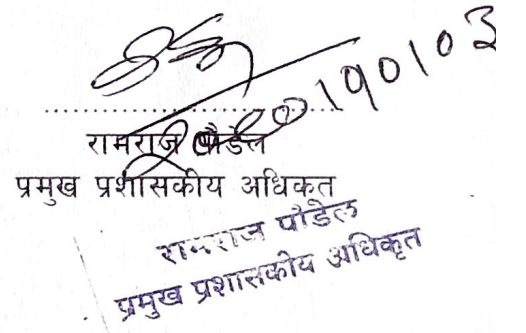 रामराज पौडेल
प्रमुख प्रशासकीय अधिकत
रामराज पौडेल
प्रमुख प्रशासकीय अधिकृत